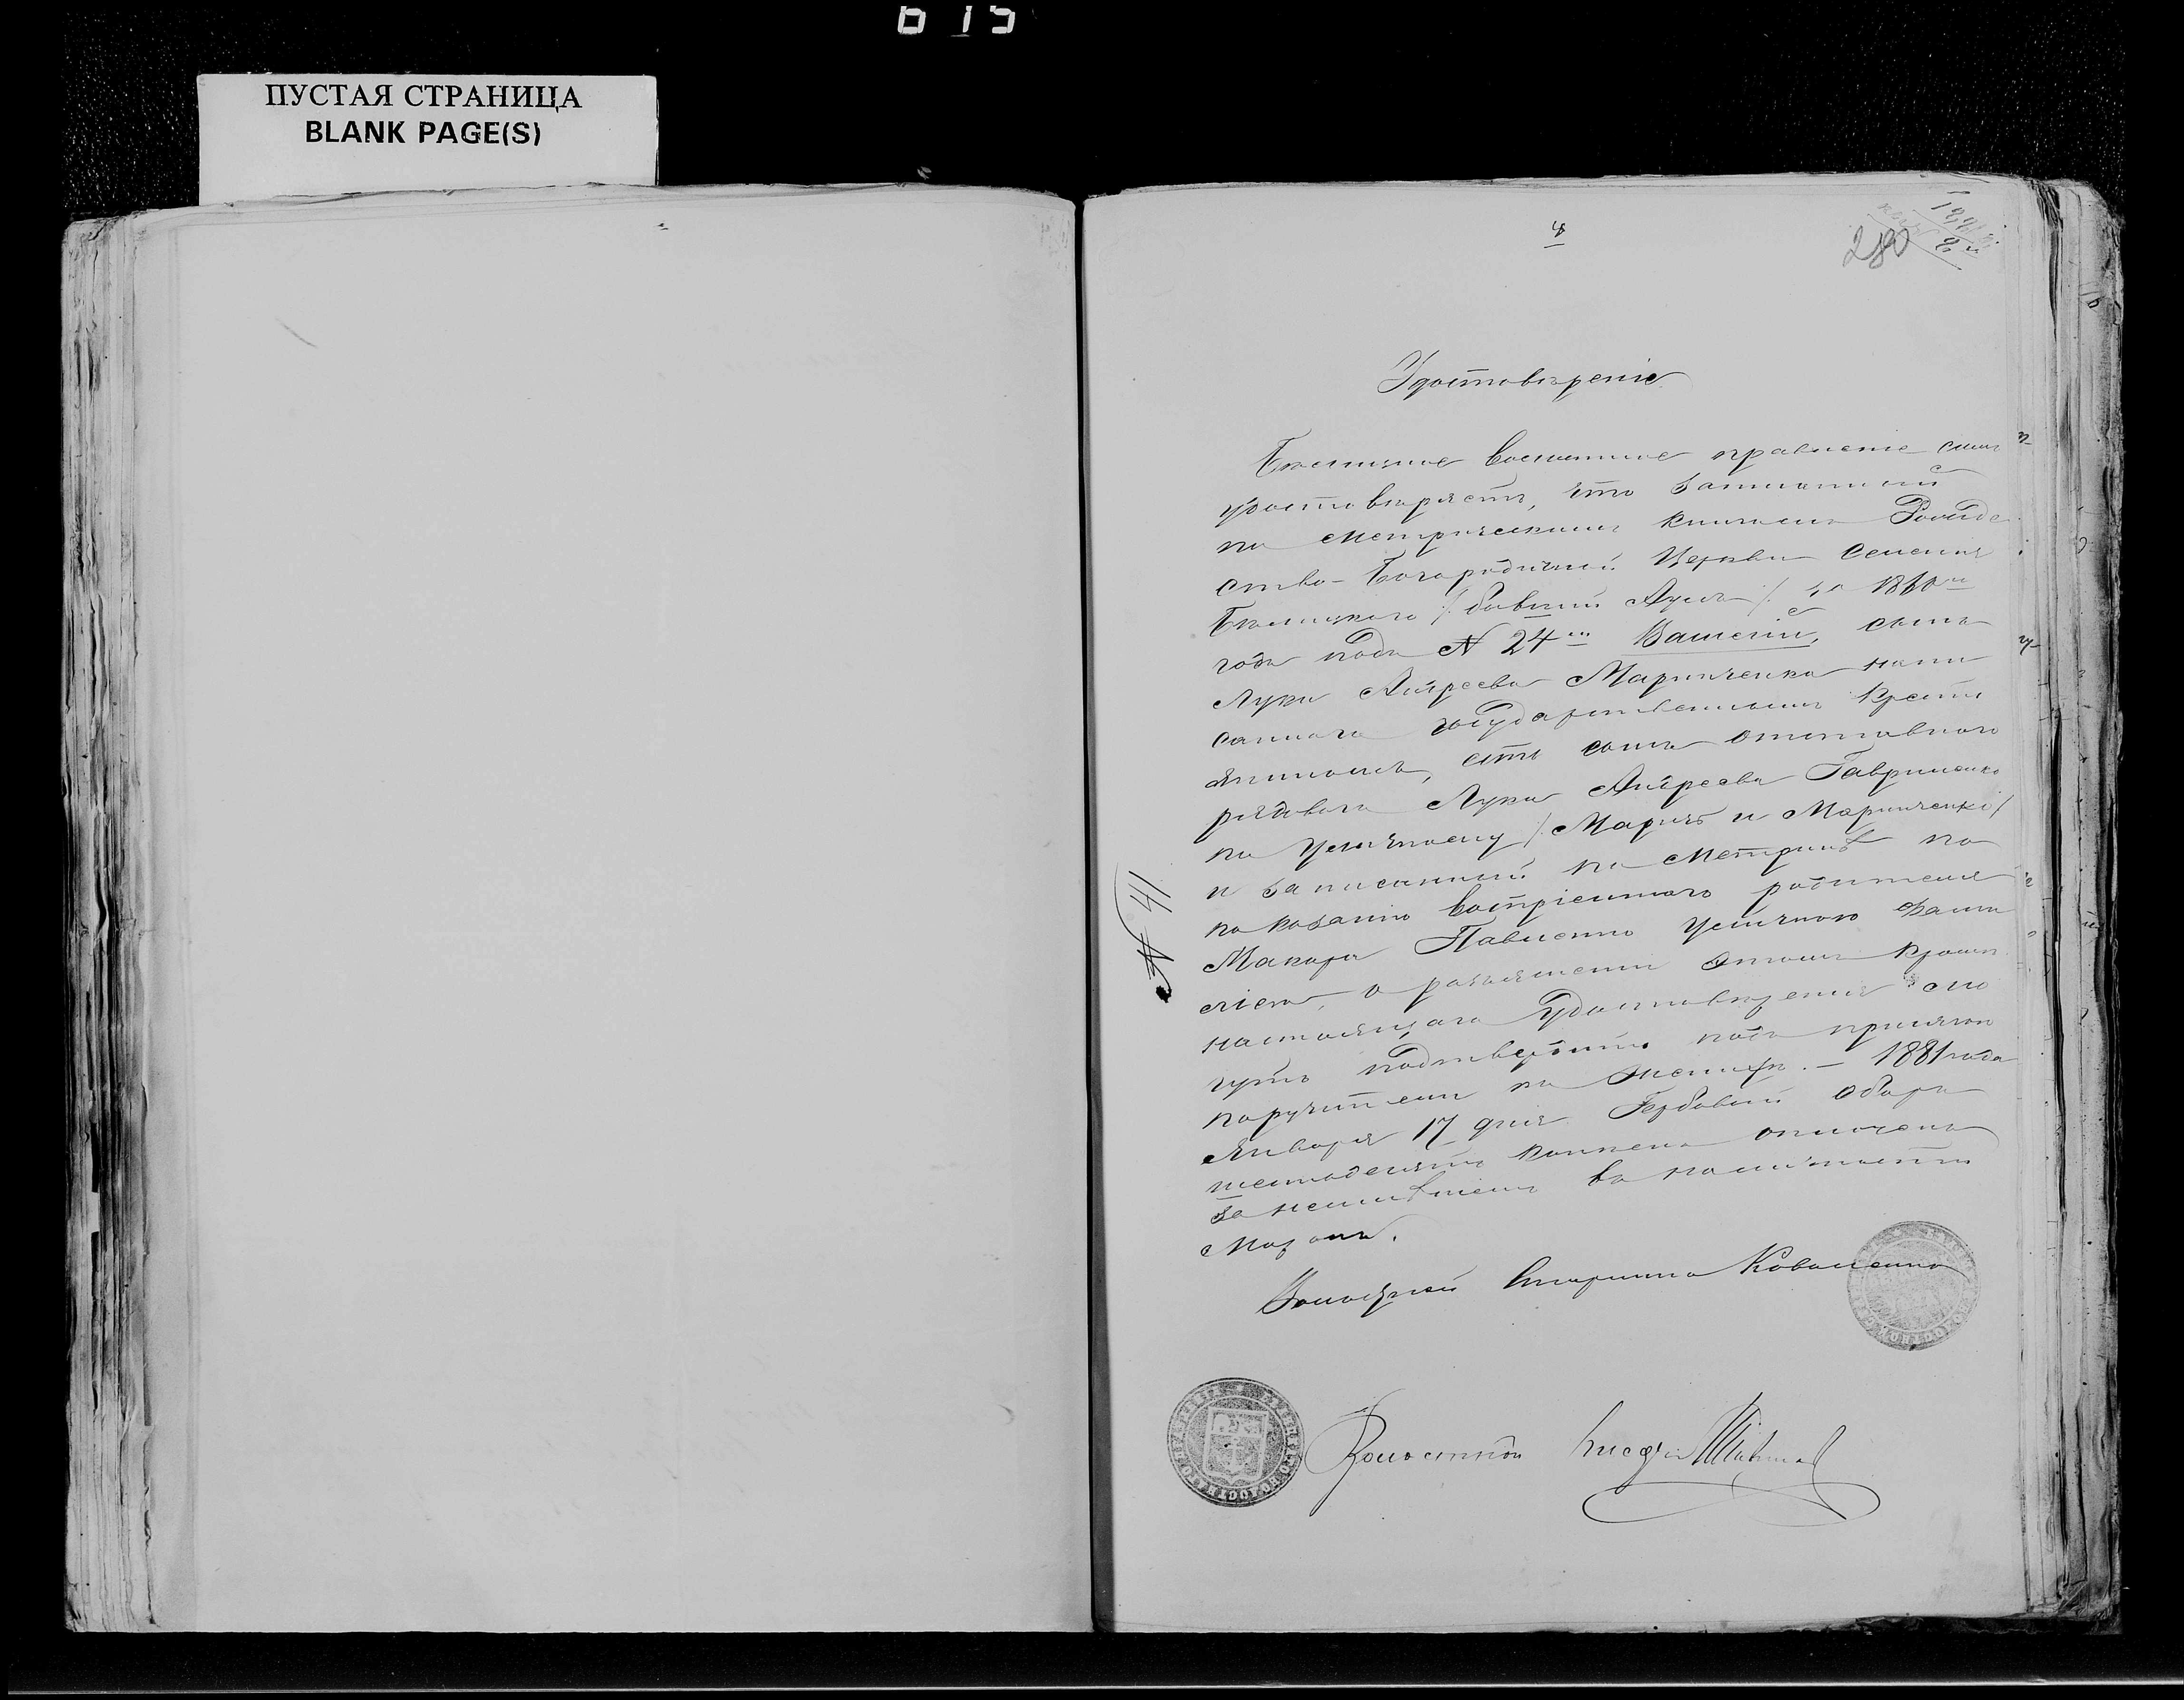 615
ПУСТАЯ СТРАНИЦА
BLANK PAGE(S)
280
Удостовѣреніе
волостное правленіе симъ
удостовѣряетъ, что записанный
по метрическимъ книгамъ Рожде
ство-Богородичной Церкви селенія
/: бывшій :/ за 1860й
годъ подъ № 24мъ Василій, сынъ
Луки Андреева Маринченка напи
саннаго государственнымъ крестья
аниномъ, есть сынъ отставного
рядового Луки Андреева Гавриленка
по уличному /: Маричъ и Маринченко :/
и записанный по метрикѣ по
показанію воспріемнаго родителя
Макара Павленко уличною фами
ліею, о разъясненіи этого кромѣ
настоящаго удостовѣренія мо
гутъ подтвердить подъ присягою
поручители по 1881 года
Января 17 дня Гербовый сборъ
шестьдесятъ копѣекъ оплоченъ
за неимѣніемъ въ наличности
марокъ.
№ 41
Волостной Старшина Коваленко
Волостной Писарь